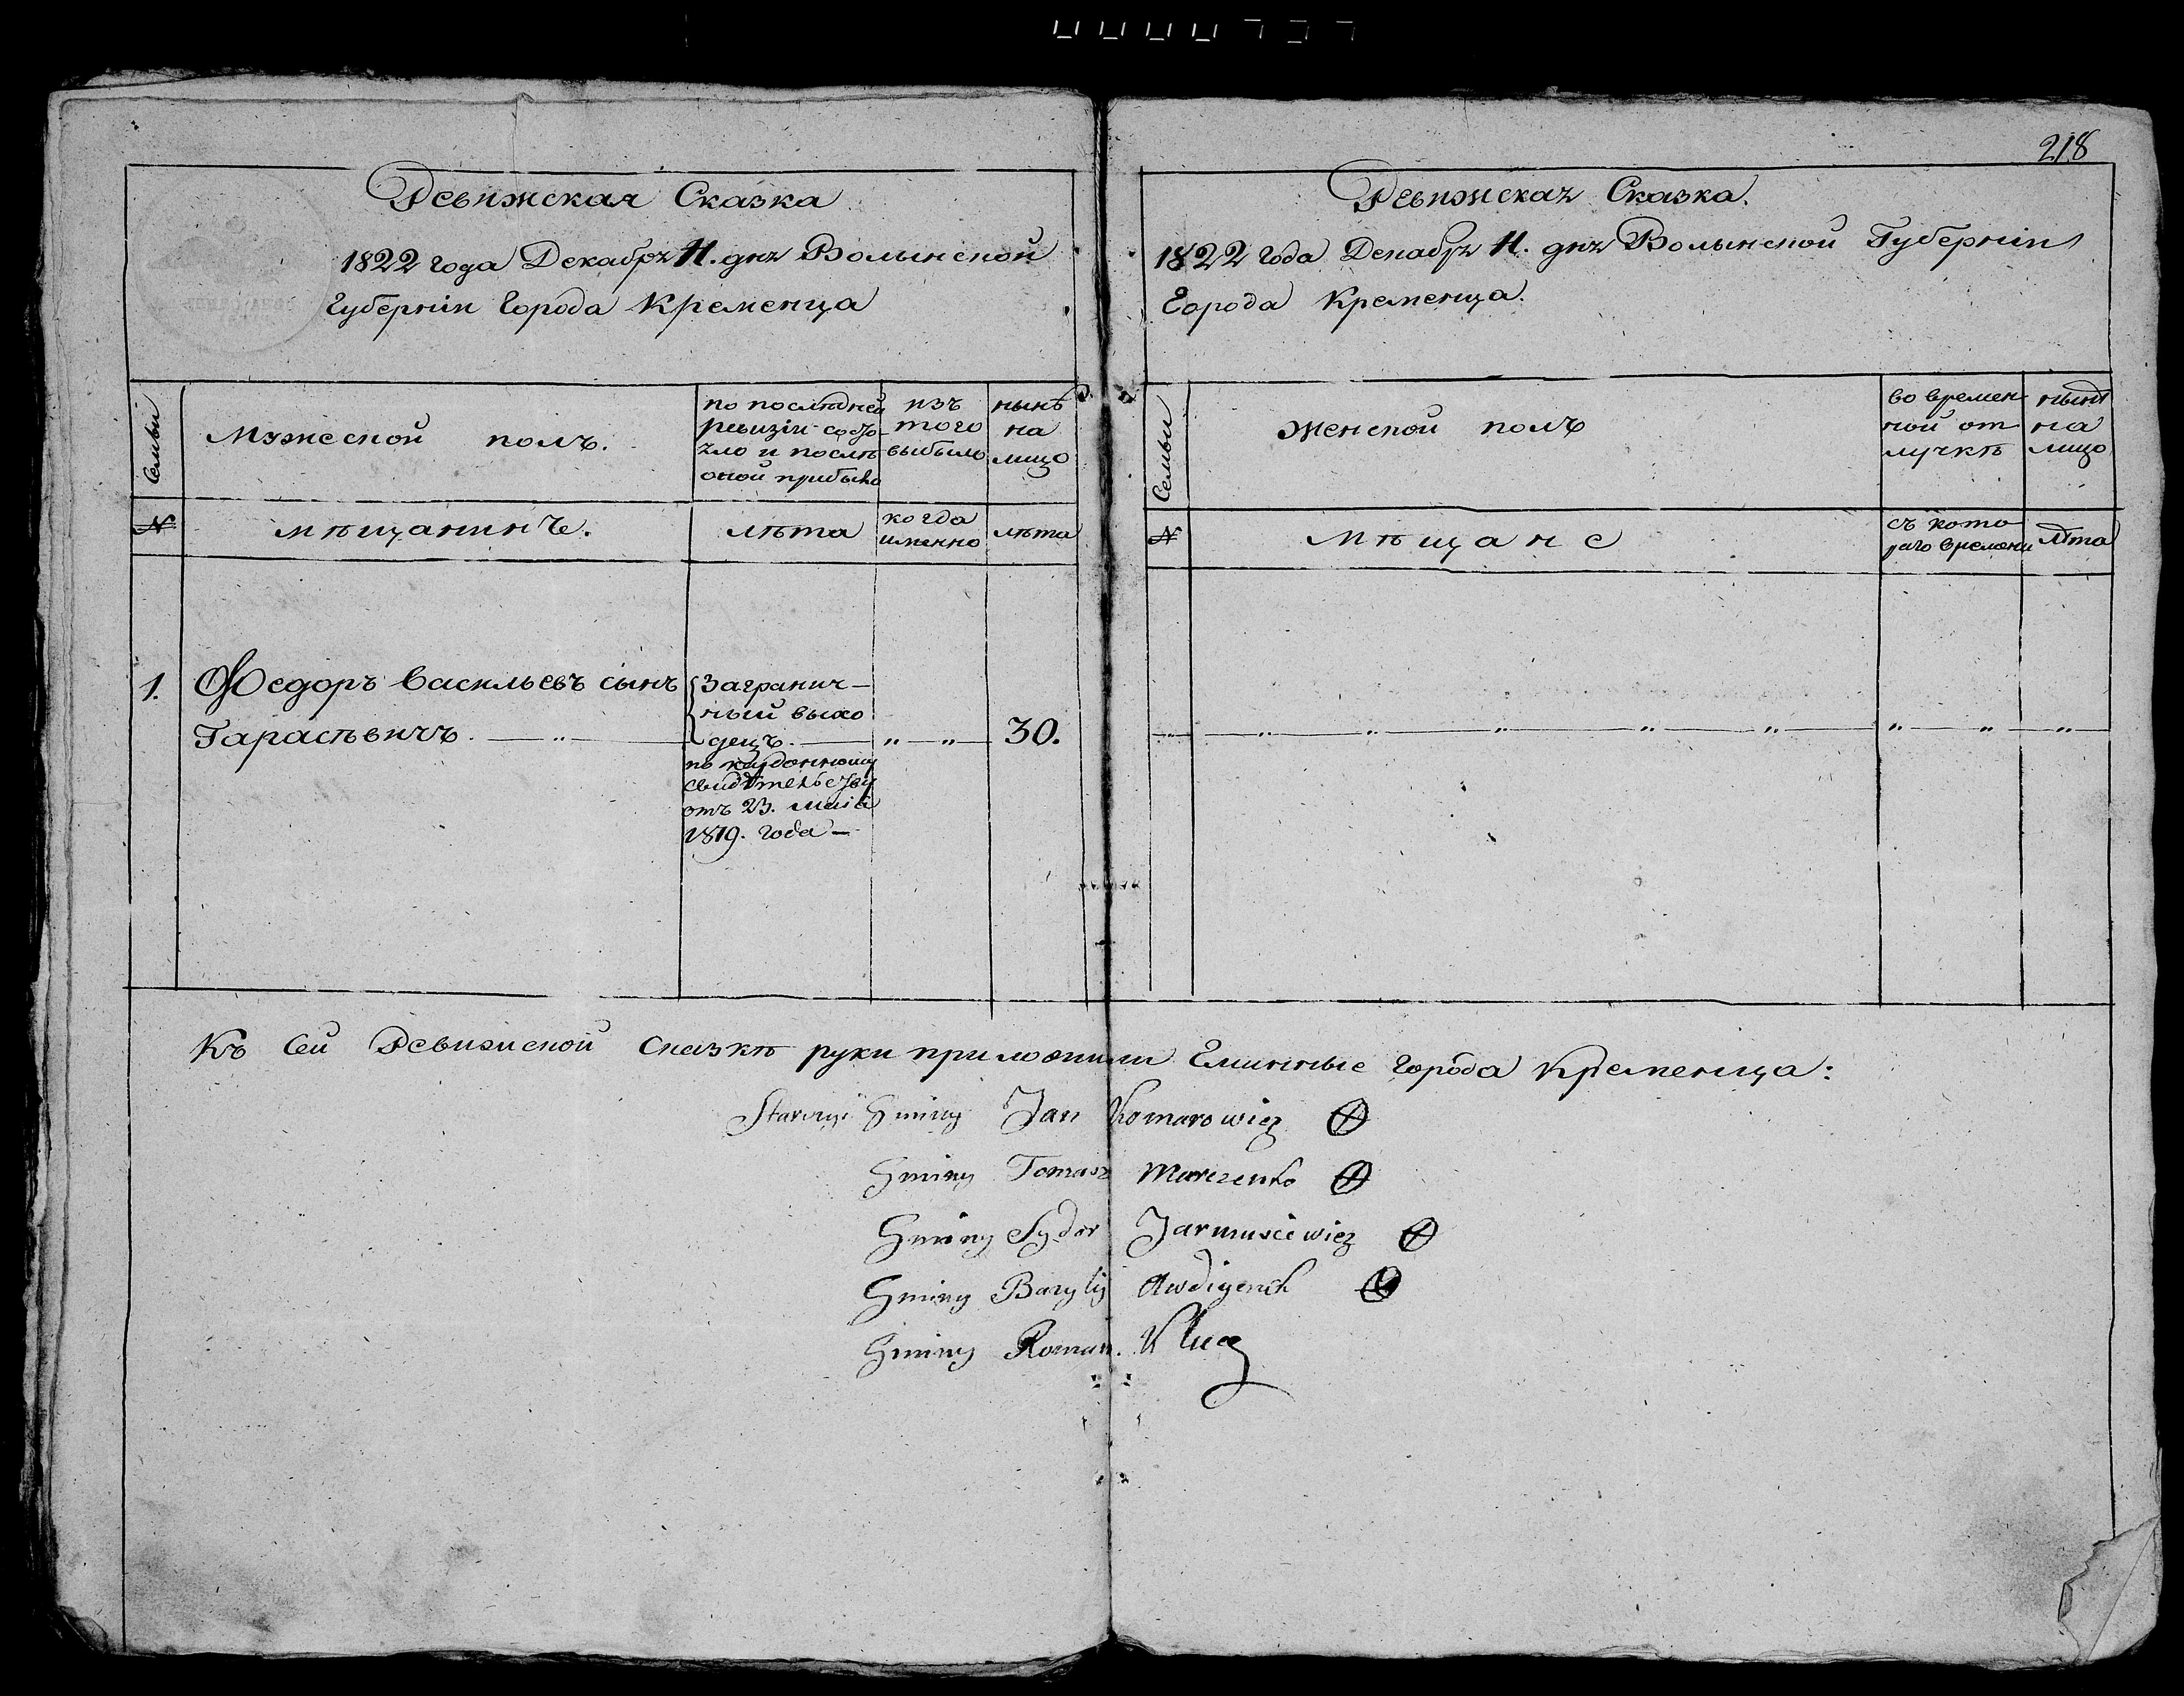 218
Ревижская Сказка
1822 года Декабря 11. дня Волынской
Губерніи Города Кременца
Семьи
Мужеской полъ.
по последней
ревизіи состо
яло и послѣ
оной прибыло
изъ
того
выбыло
нынѣ
на
лицо
№
мѣщанинъ.
лѣта
когда
именно
лѣта
1.
Федоръ Васильевъ сынъ
Тарасѣвичъ.
Загранич-
ный выхо
децъ.
по кардонному
свидѣтельству
отъ 23. маія
1819. года
30.
Ревижская Сказка.
1822 года Декабря 11. дня Волынской Губерніи
Города Кременца.
Семьи
Женской полъ
во времен
ной от
лучкѣ
нынѣ
на
лицо
№
мѣщане
съ кото
раго времени
лѣта
Къ сей Ревизской сказкѣ руки приложили Гминные города Кременца:
Starszyi Gminy Jan Komarowicz
Gminy Tomasz Marczenko
Gminy Sydor Jarmusiewicz
Gminy Bazyly
Gminy Roman